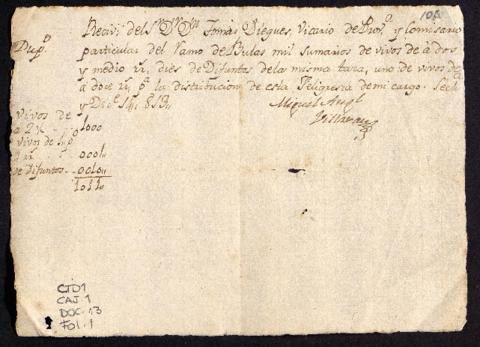 10A
Dup.º
Recivi del S.r D.r D.n Tomas Dieguez, Vicario de Prov.a y Comisario
particular del Ramo de Bulas mil sumarios de vivos de à dos
y medio rr.s, dies de Difuntos de la misma tasa, uno de vivos de
a doce rr.s p.a la distribucion de esta Feligresia de mi cargo.
y Dic.e 813
Miguel Angl
Villavan
Vivos de
a 2½ 1000
vivos de
rr.s 0001
de Difuntos 0010
1011
CTD1
CAJ.1
DOC.13
FOL.1